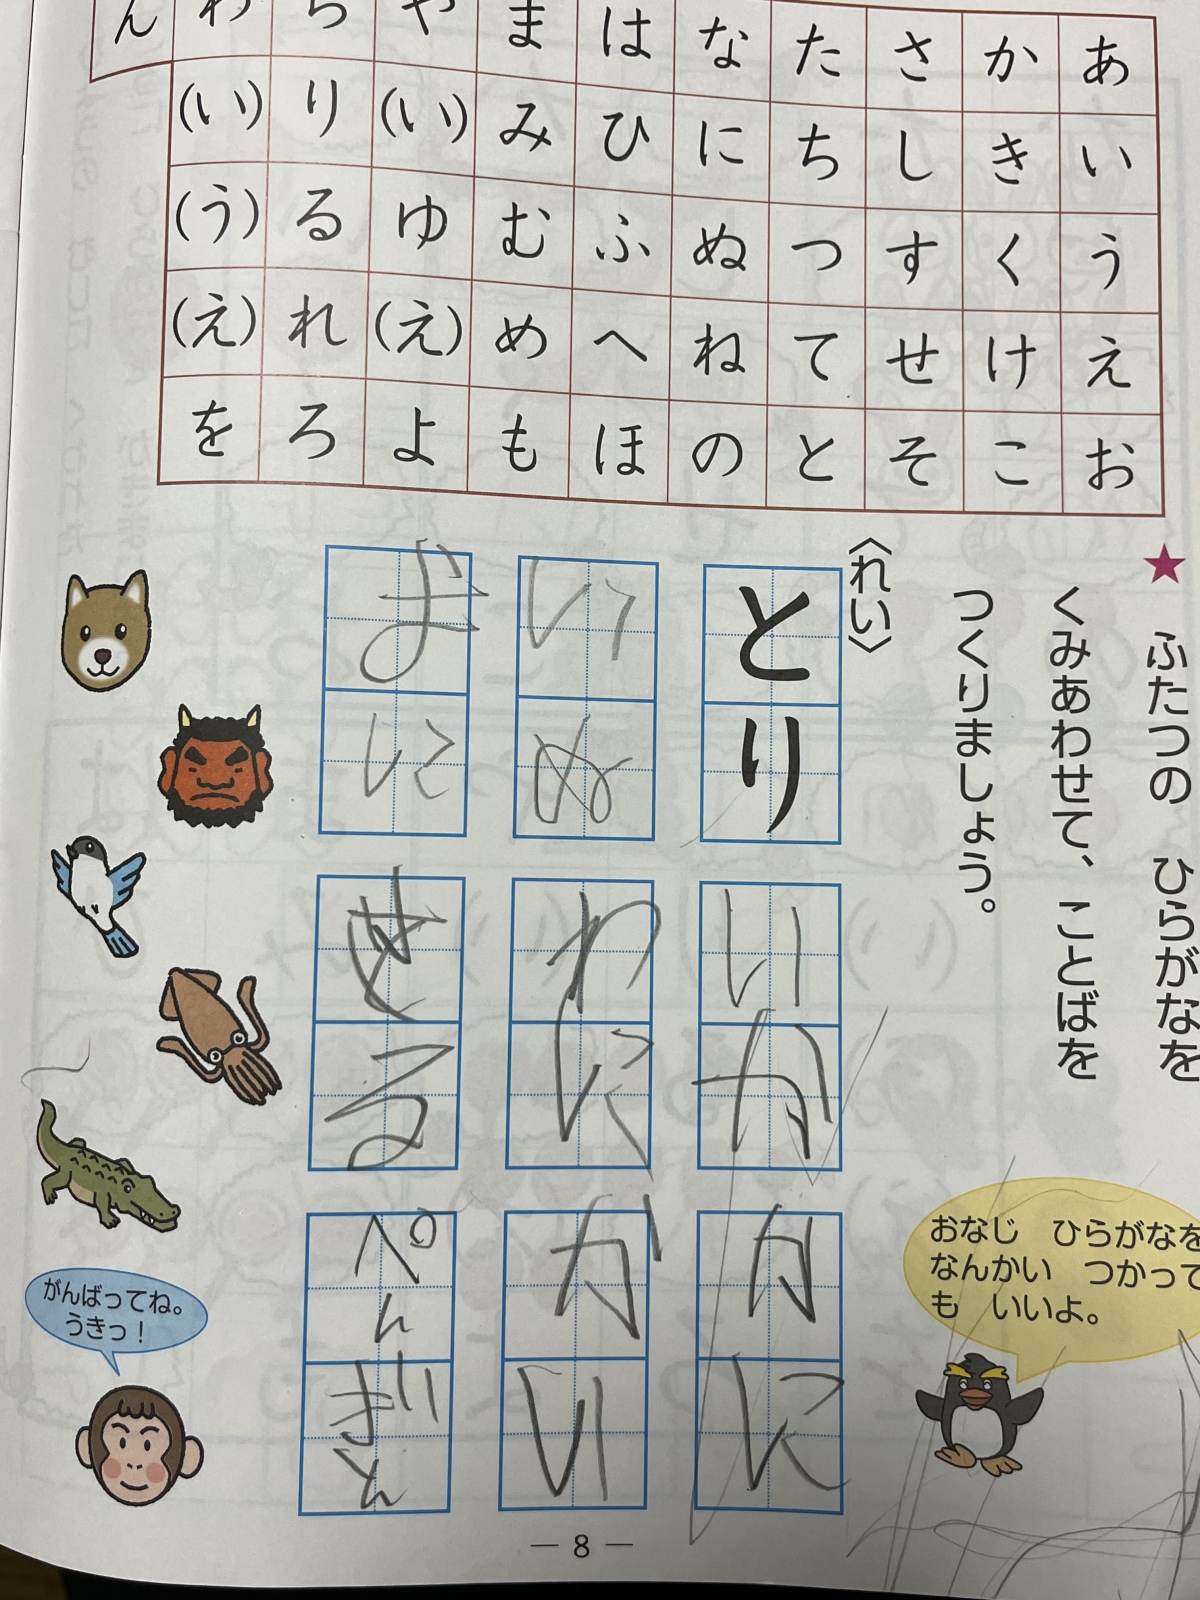 あいうえお
かきくけこ
さしすせそ
たちつてと
なにぬねの
はひふへほ
まみむめも
や(い)ゆ(え)よ
らりるれろ
わ(い)(う)(え)を
ん
★ ふたつの ひらがなを
くみあわせて、ことばを
つくりましょう。
おなじ ひらがなを
なんかい つかって
も いいよ。
〈れい〉
とり
いか
かに
いぬ
わに
かい
おに
ぺんぎん
がんばってね。
うきっ！
— 8 —